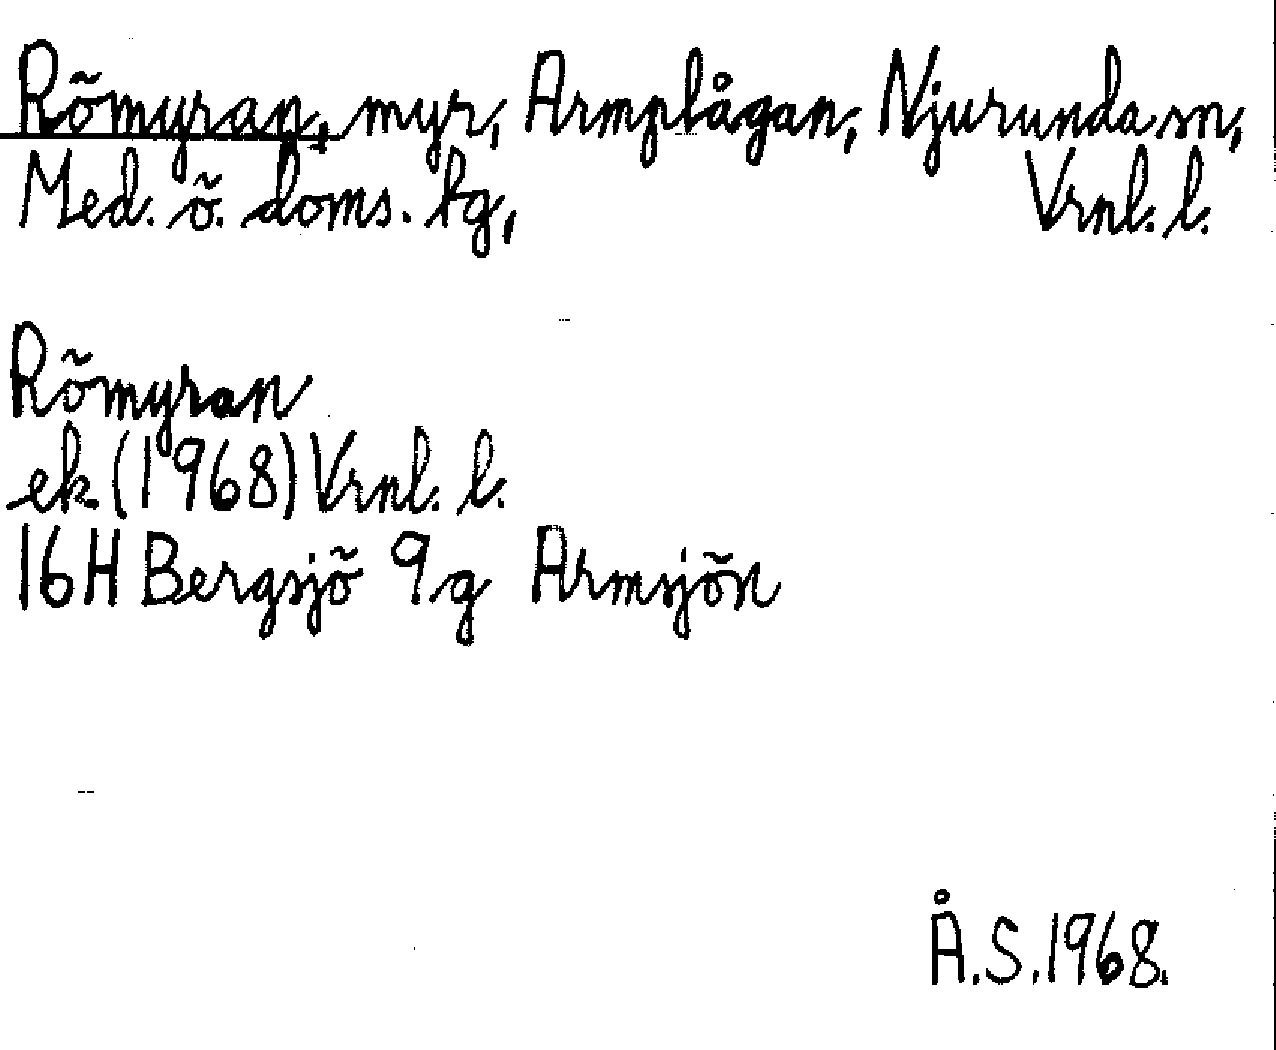 Rõmyran, myr, Armplågan, Njurunda sn,
Med. õ. doms. tg, Vrnl. l.
Rõmyran
ek (1968) Vrnl. l.
16H Bergsjõ 9g Armsjõn
Å.S. 1968.